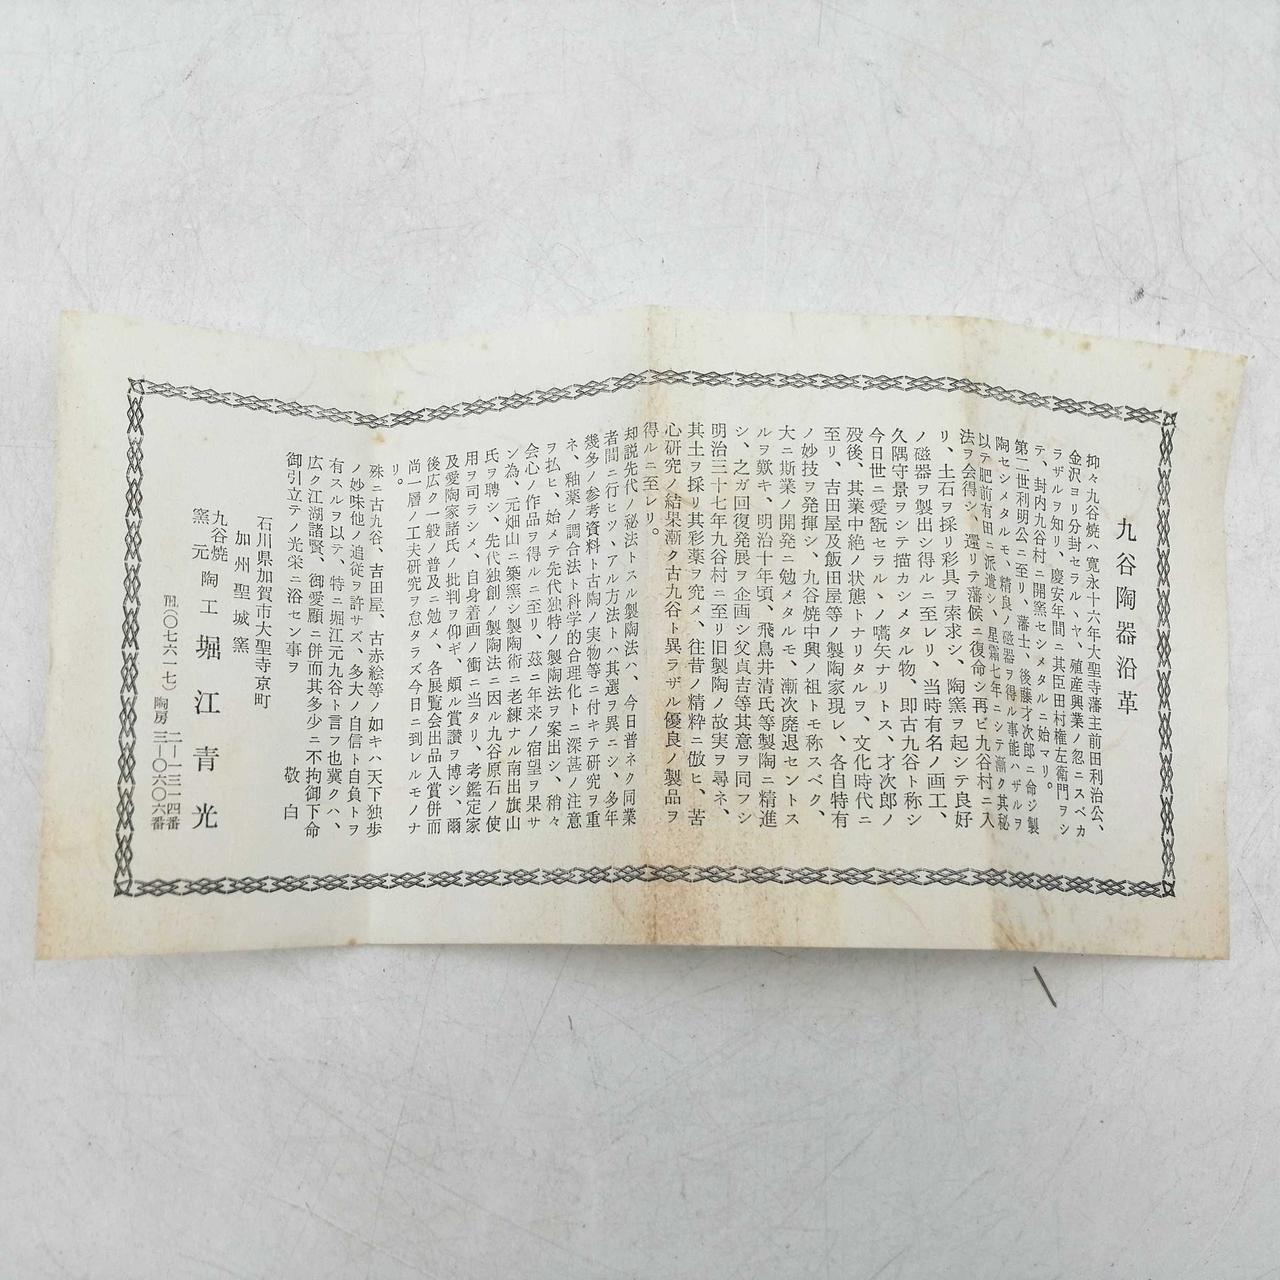 九谷陶器沿革
抑々九谷焼ハ寛永十六年大聖寺藩主前田利治公、
金沢ヨリ分封セラルヽヤ、殖産興業ノ忍ニスベカ
ラザルヲ知リ、慶安年間ニ其臣田村権左衛門ヲシ
テ、封内九谷村ニ開窯セシメタルニ始マリ。
第二世利明公ニ至リ、藩士、後藤才次郎ニ命ジ製
陶セシメタルモ、精良ノ磁器ヲ得ル事能ハザルヲ
以テ肥前有田ニ派遣シ、星霜七年ニシテ漸ク其秘
法ヲ会得シ、還リテ藩候ニ復命シ再ビ九谷村ニ入
リ、土石ヲ採リ彩具ヲ索求シ、陶窯ヲ起シテ良好
ノ磁器ヲ製出シ得ルニ至レリ、当時有名ノ画工、
久隅守景ヲシテ描カシメタル物、即古九谷ト称シ
今日世ニ愛翫セラルヽノ嚆矢ナリトス、才次郎ノ
歿後、其業中絶ノ状態トナリタルヲ、文化時代ニ
至リ、吉田屋及飯田屋等ノ製陶家現レ、各自特有
ノ妙技ヲ発揮シ、九谷焼中興ノ祖トモ称スベク、
大ニ斯業ノ開発ニ勉メタルモ、漸次廃退セントス
ルヲ歎キ、明治十年頃、飛鳥井清氏等製陶ニ精進
シ、之ガ回復発展ヲ企画シ父貞吉等其意ヲ同フシ
明治三十七年九谷村ニ至リ旧製陶ノ故実ヲ尋ネ、
其土ヲ採リ其彩薬ヲ究メ、往昔ノ精粋ニ倣ヒ、苦
心研究ノ結果漸ク古九谷ト異ラザル優良ノ製品ヲ
得ルニ至レリ。
却説先代ノ秘法トスル製陶法ハ、今日普ネク同業
者間ニ行ヒツヽアル方法トハ其選ヲ異ニシ、多年
幾多ノ参考資料ト古陶ノ実物等ニ付キテ研究ヲ重
ネ、釉薬ノ調合法ト科学的合理化トニ深甚ノ注意
ヲ払ヒ、始メテ先代独特ノ製陶法ヲ案出シ、稍々
会心ノ作品ヲ得ルニ至リ、茲ニ年来ノ宿望ヲ果サ
ン為、元畑山ニ築窯シ製陶術ニ老練ナル南出旗山
氏ヲ聘シ、先代独創ノ製陶法ニ因ル九谷原石ノ使
用ヲ司ラシメ、自身着画ノ衝ニ当タリ、考鑑定家
及愛陶家諸氏ノ批判ヲ仰ギ、頗ル賞讃ヲ博シ、爾
後広ク一般ノ普及ニ勉メ、各展覧会出品入賞併而
尚一層ノ工夫研究ヲ怠タラズ今日ニ到レルモノナ
リ。
殊ニ古九谷、吉田屋、古赤絵等ノ如キハ天下独歩
ノ妙味他ノ追従ヲ許サズ、多大ノ自信ト自負トヲ
有スルヲ以テ、特ニ堀江元九谷ト言フ也冀クハ、
広ク江湖諸賢、御愛顧ニ併而其多少ニ不拘御下命
御引立テノ光栄ニ浴セン事ヲ 敬白
石川県加賀市大聖寺京町
加州聖城窯
九谷焼
窯元 陶工 堀江青光
TEL(〇七六一七) 二―一三一四番
陶房 三―〇六〇六番